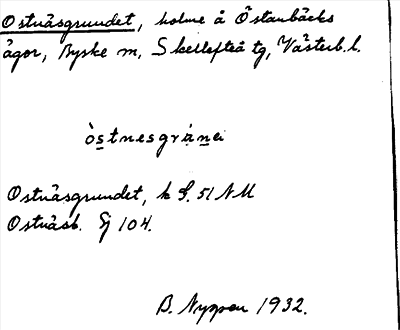 Ostnäsgrundet, holme å Östanbäcks
ägor, Byske m, Skellefteå tg, Västerb. l.
òstnesgrȧnei
Ostnäsgrundet, k S. 51 NM
Ostnäsb. Ej 104.
B. Nyppen 1932.